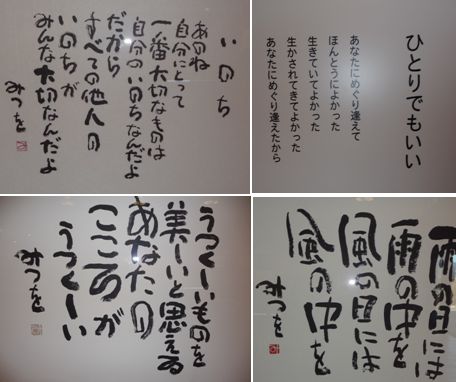 いのち
あのね
自分にとって
一番大切なものは
自分のいのちなんだよ
だから
すべての他人の
いのちが
みんな大切なんだよ
みつを
ひとりでもいい
あなたにめぐり逢えて
ほんとうによかった
生きていてよかった
生かされてきてよかった
あなたにめぐり逢えたから
うつくしいものを
美しいと思える
あなたの
こころが
うつくしい
みつを
雨の日には
雨の中を
風の日には
風の中を
みつを